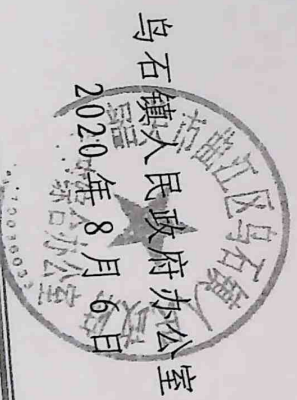 乌石镇人民政府办公室
2020年8月6日
曲江区乌石镇人
综合办公室